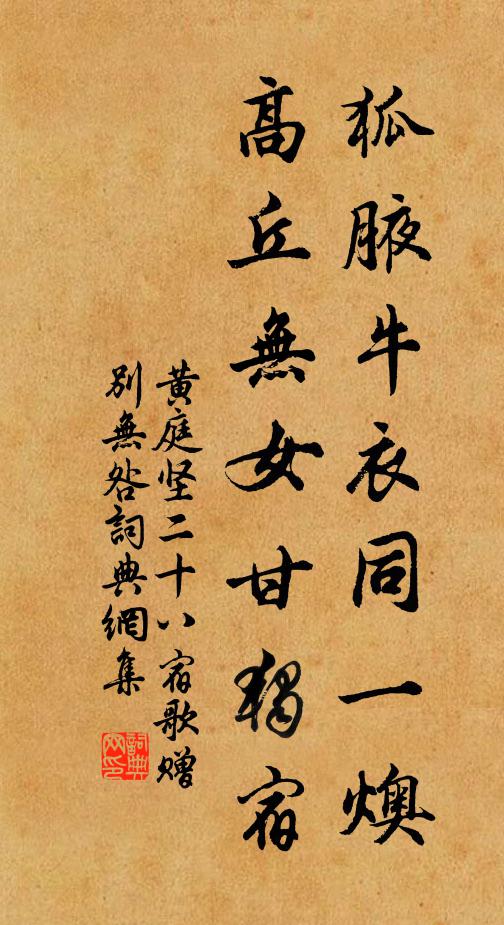 狐腋牛衣同一燠
高丘無女甘獨宿
黄庭坚二十八宿歌赠
别無咎詞典網集
詞典
网印